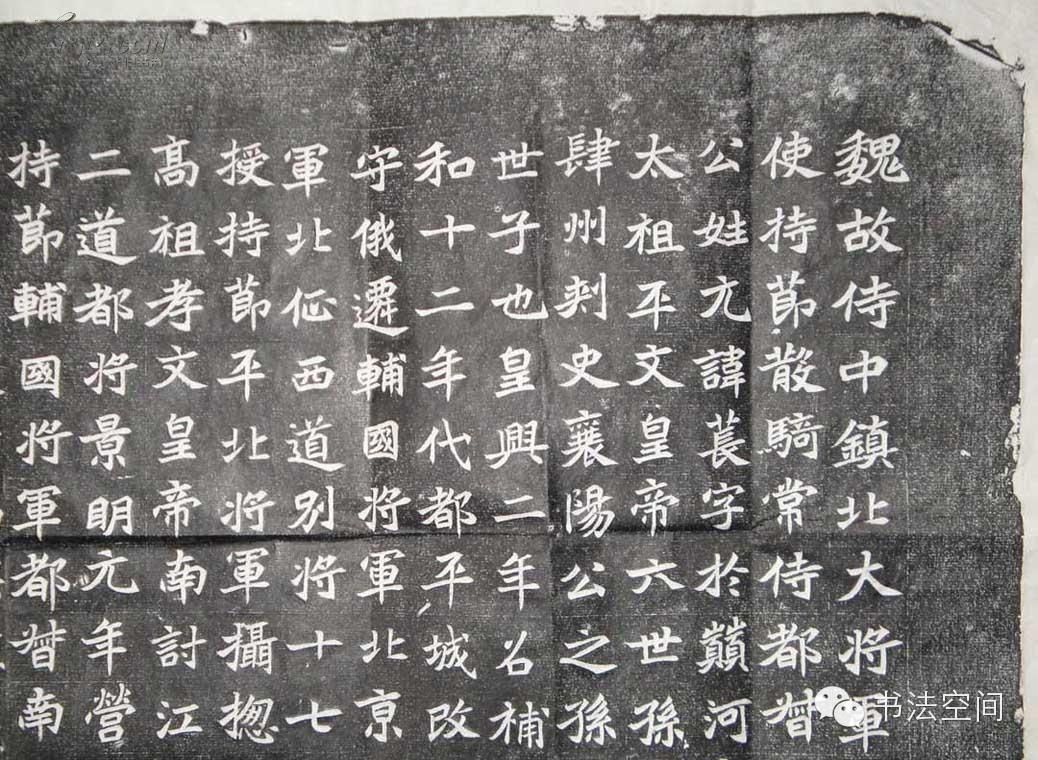 魏故侍中鎮北大將軍
使持節散騎常侍都督
公姓元諱萇字於巔河
太祖平文皇帝六世孫
肆州刺史襄陽公之孫
世子也皇興二年召補
和十二年代都平城改
守俄遷輔國將軍北京
軍北征西道別將十七
授持節平北將軍攝揔
高祖孝文皇帝南討江
二道都將景明元年營
持節輔國將軍都督南
书法空间